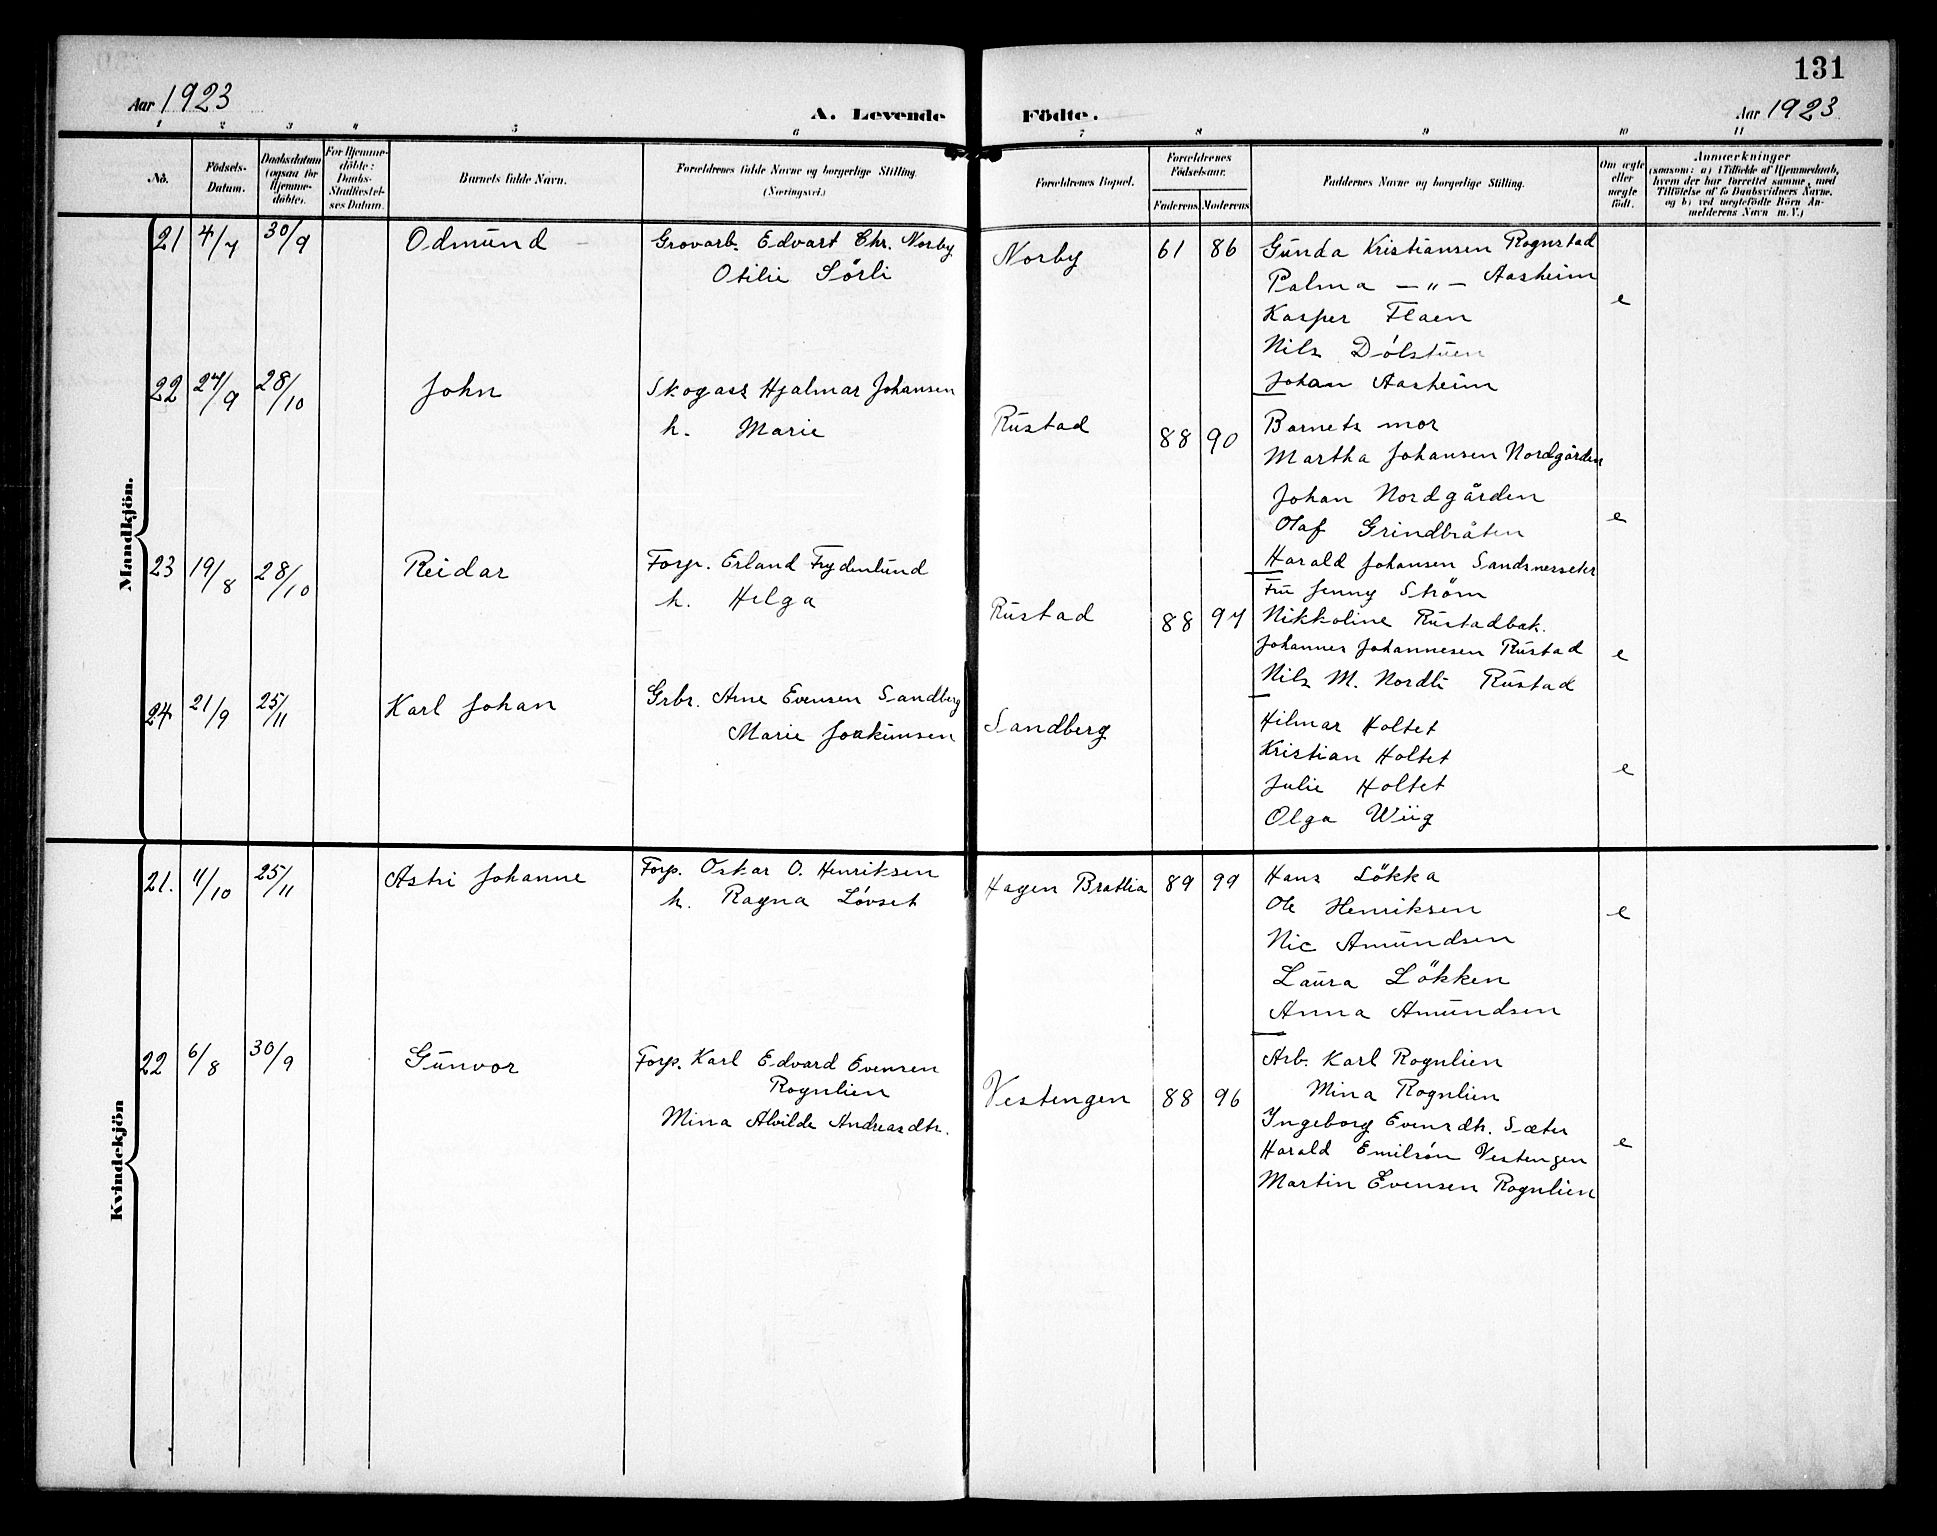 131
Aar 1923
A. Levende Födte.
Aar 1923
1 2 3 4 5 6 7 8 9 10 11
No.
Födsels-Datum.
Daabsdatum (ogsaa for Hjemmedöbte).
For Hjemmedöbte: Daabs-Stadfæstelses Datum.
Barnets fulde Navn.
Forældrenes fulde Navne og borgerlige Stilling. (Næringsvei.)
Forældrenes Bopæl.
Forældrenes Födselsaar.
Faderens Moderens
Faddernes Navne og borgerlige Stilling.
Om ægte eller uægte födt.
Anmærkninger
(saasom: a) i Tilfælde af Hjemmedaab, hvem der har forrettet samme, med Tilföielse af to Daabsvidners Navne, og b) ved uægtefödte Börn Anmelderens Navn m. V.)
Mandkjön.
21 4/7 30/9 Odmund
Grovarb. Edvart Chr. Norby
Otilie Sörli
Norby 61 86
Gunda Kristiansen Rognstad
Palma —„— Aasheim
Kasper Flaen
Nils Dölstuen
Johan Aasheim
e
22 27/9 28/10 John
Skogass Hjalmar Johansen
h. Marie
Rustad 88 90
Barnets mor
Martha Johansen Nordgården
Johan Nordgården
Olaf Grindbråten
Harald Johansen Sandsnesseter
e
23 19/8 28/10 Reidar
Forp. Erland Frydenlund
h. Helga
Rustad 88 97
Fru Jenny Ström
Nikkoline Rustadbak.
Johannes Johannesen Rustad
Nils M. Nordli Rustad
e
24 21/9 25/11 Karl Johan
Grbr. Arne Evensen Sandberg
Marie Joakimsen
Sandberg
Hilmar Holtet
Kristian Holtet
Julie Holtet
Olga Wiig
e
Kvindekjön
21. 11/10 25/11 Astri Johanne
Forp. Oskar O. Henriksen
h. Ragna Lövset
Hagen Brattlia 89 99
Hans Lökka
Ole Henriksen
Nic Amundsen
Laura Lökken
Anna Amundsen
e
22 6/8 30/9 Gunvor
Forp. Karl Edvard Evensen
Rognlien
Mina Alvilde Andreasdtr.
Vestengen 88 96
Arb. Karl Rognlien
Mina Rognlien
Ingeborg Evensdtr. Sæter
Harald Emilsön Vestengen
Martin Evensen Rognlien
e